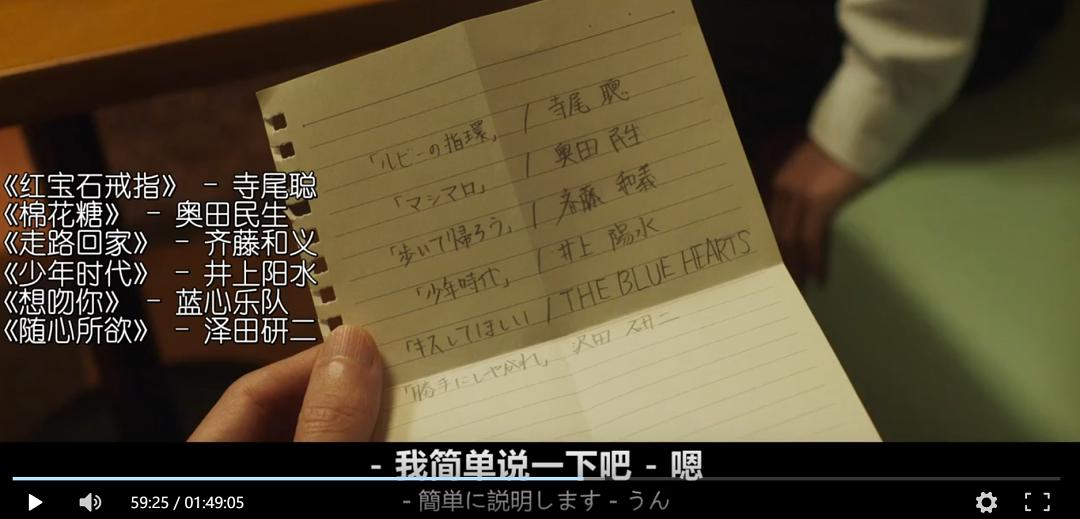 「ルビーの指環」 / 寺尾 聰
「マシマロ」 / 奥田 民生
「歩いて帰ろう」 / 斉藤 和義
「少年時代」 / 井上 陽水
「キスしてほしい」 / THE BLUE HEARTS
「勝手にしやがれ」 沢田 研二
《红宝石戒指》 - 寺尾聪
《棉花糖》 - 奥田民生
《走路回家》 - 齐藤和义
《少年时代》 - 井上阳水
《想吻你》 - 蓝心乐队
《随心所欲》 - 泽田研二
- 我简单说一下吧 - 嗯
- 簡単に説明します - うん
59:25 / 01:49:05